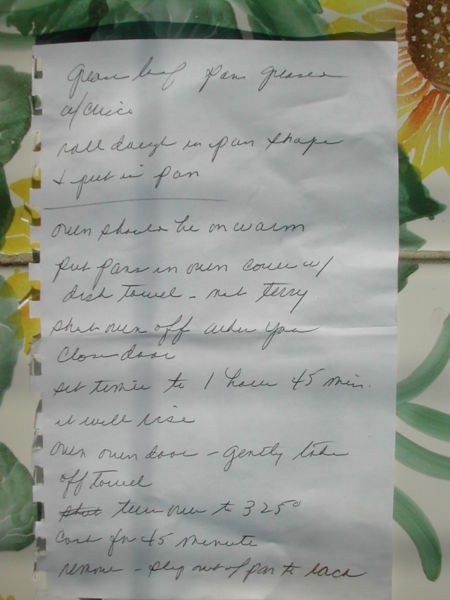 Grease loaf pans greased
w/crisco
roll dough in pan shape
& put in pan
oven should be on warm
put pans in oven cover w/
dish towel - not terry
shut oven off when you
close door
set timer to 1 hour 45 min.
it will rise
open oven door - gently take
off towel
turn oven to 325°
cook for 45 minute
remove - slip out of pan to rack